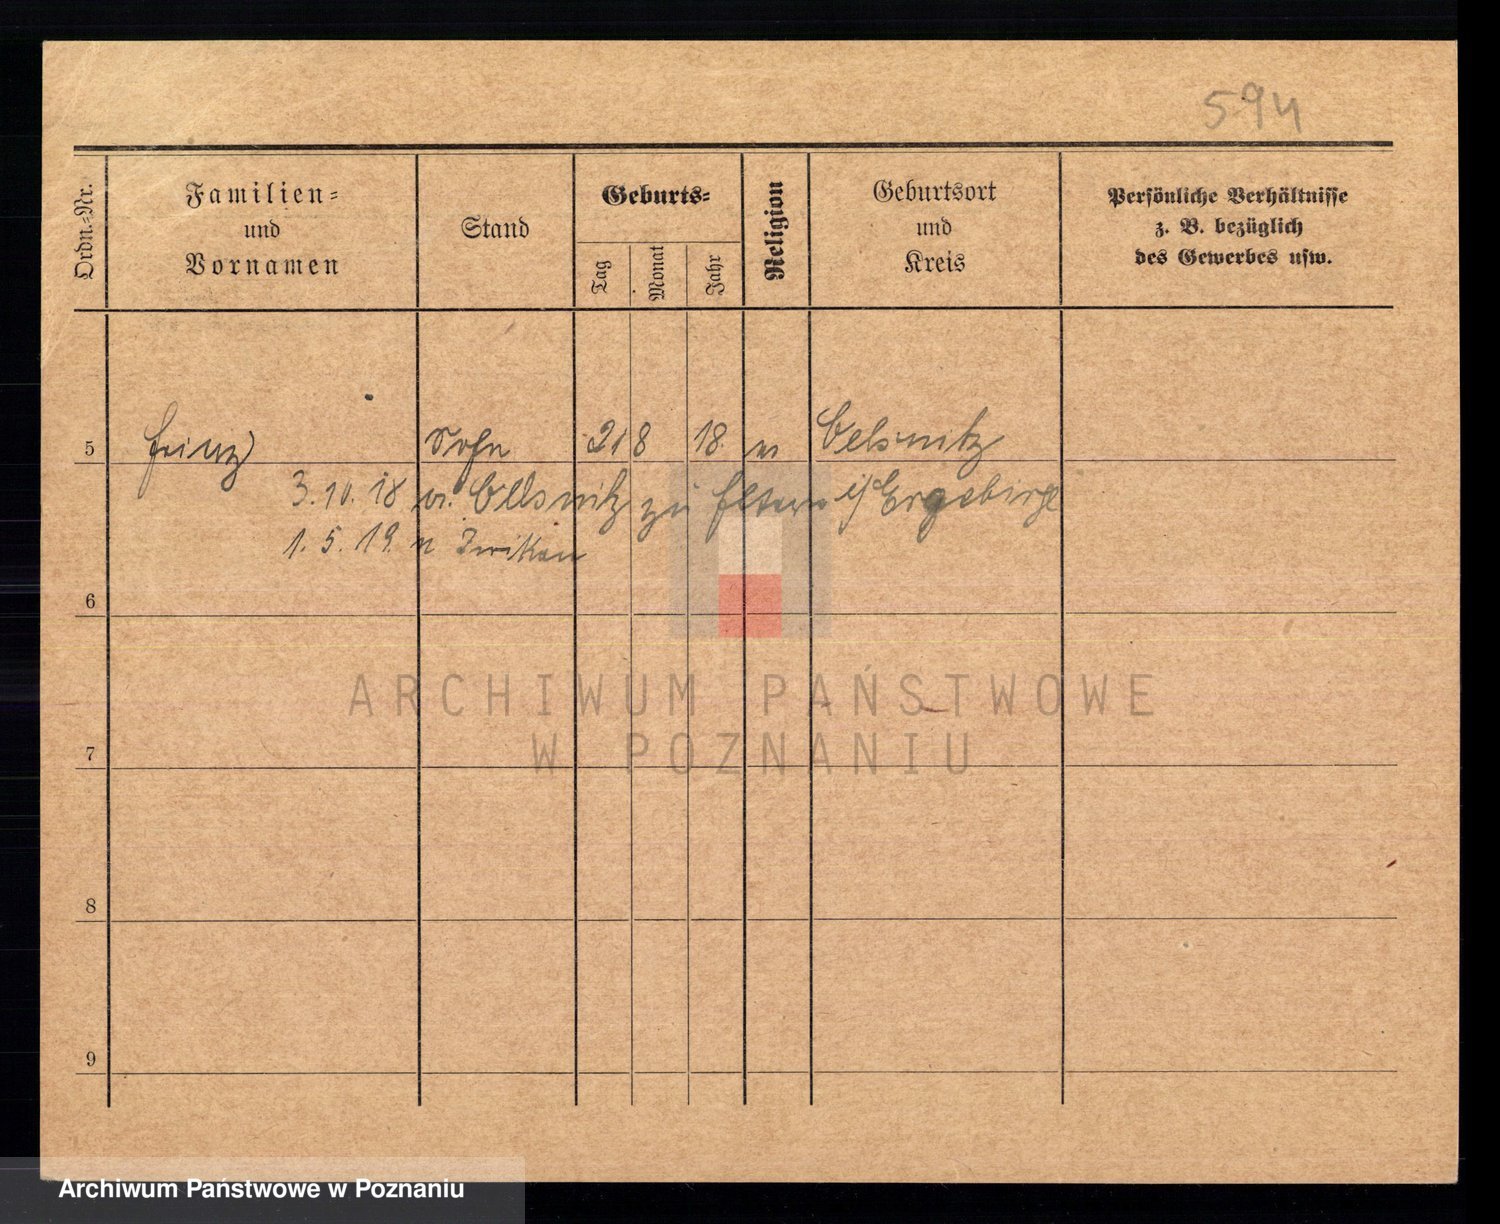 594
Ordn.-Nr.
Familien-
und
Vornamen
Stand
Geburts-
Tag
Monat
Jahr
Religion
Geburtsort
und
Kreis
Persönliche Verhältnisse
z. B. bezüglich
des Gewerbes usw.
5 Heinz Sohn 21 8 18 Oelsnitz
3.10.18 v. Oelsnitz zu Eltern i/Erzgebirge
1.5.19. n Zwikau
6
7
8
9
ARCHIWUM PAŃSTWOWE
W POZNANIU
Archiwum Państwowe w Poznaniu